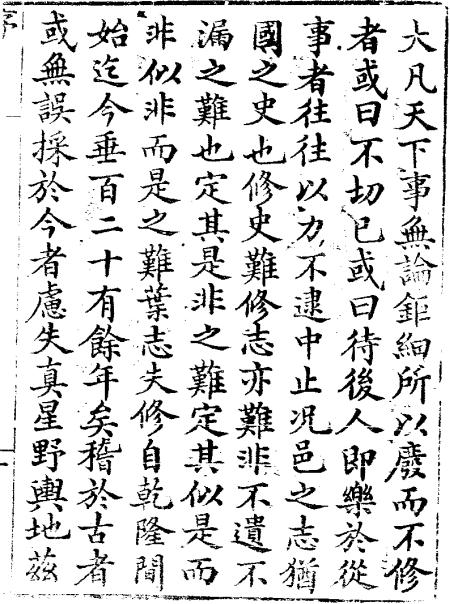 大凡天下事無論鉅細所以廢而不修
者或曰不切已或曰待後人即樂於從
事者往往以力不逮中止况邑之志猶
國之史也修史難修志亦難非不遺不
漏之難也定其是非之難定其似是而
非似非而是之難葉志夫修自乾隆間
始迄今垂百二十有餘年矣稽於古者
或無誤採於今者慮失真星野輿地茲
序